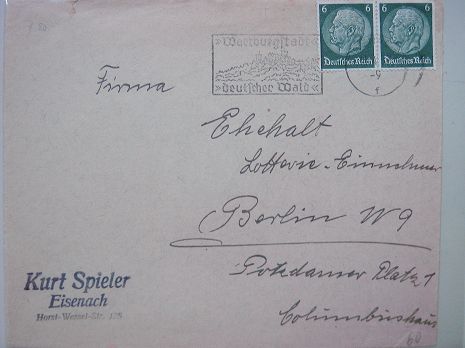 6 6
Deutsches Reich Deutsches Reich
»Wartburgstadt«
»deutscher Wald«
Firma
Ehehalt
Lotterie-Einnehmer
Berlin W9
Potsdamer Platz 1
Columbushaus
Kurt Spieler
Eisenach
Horst-Wessel-Str.